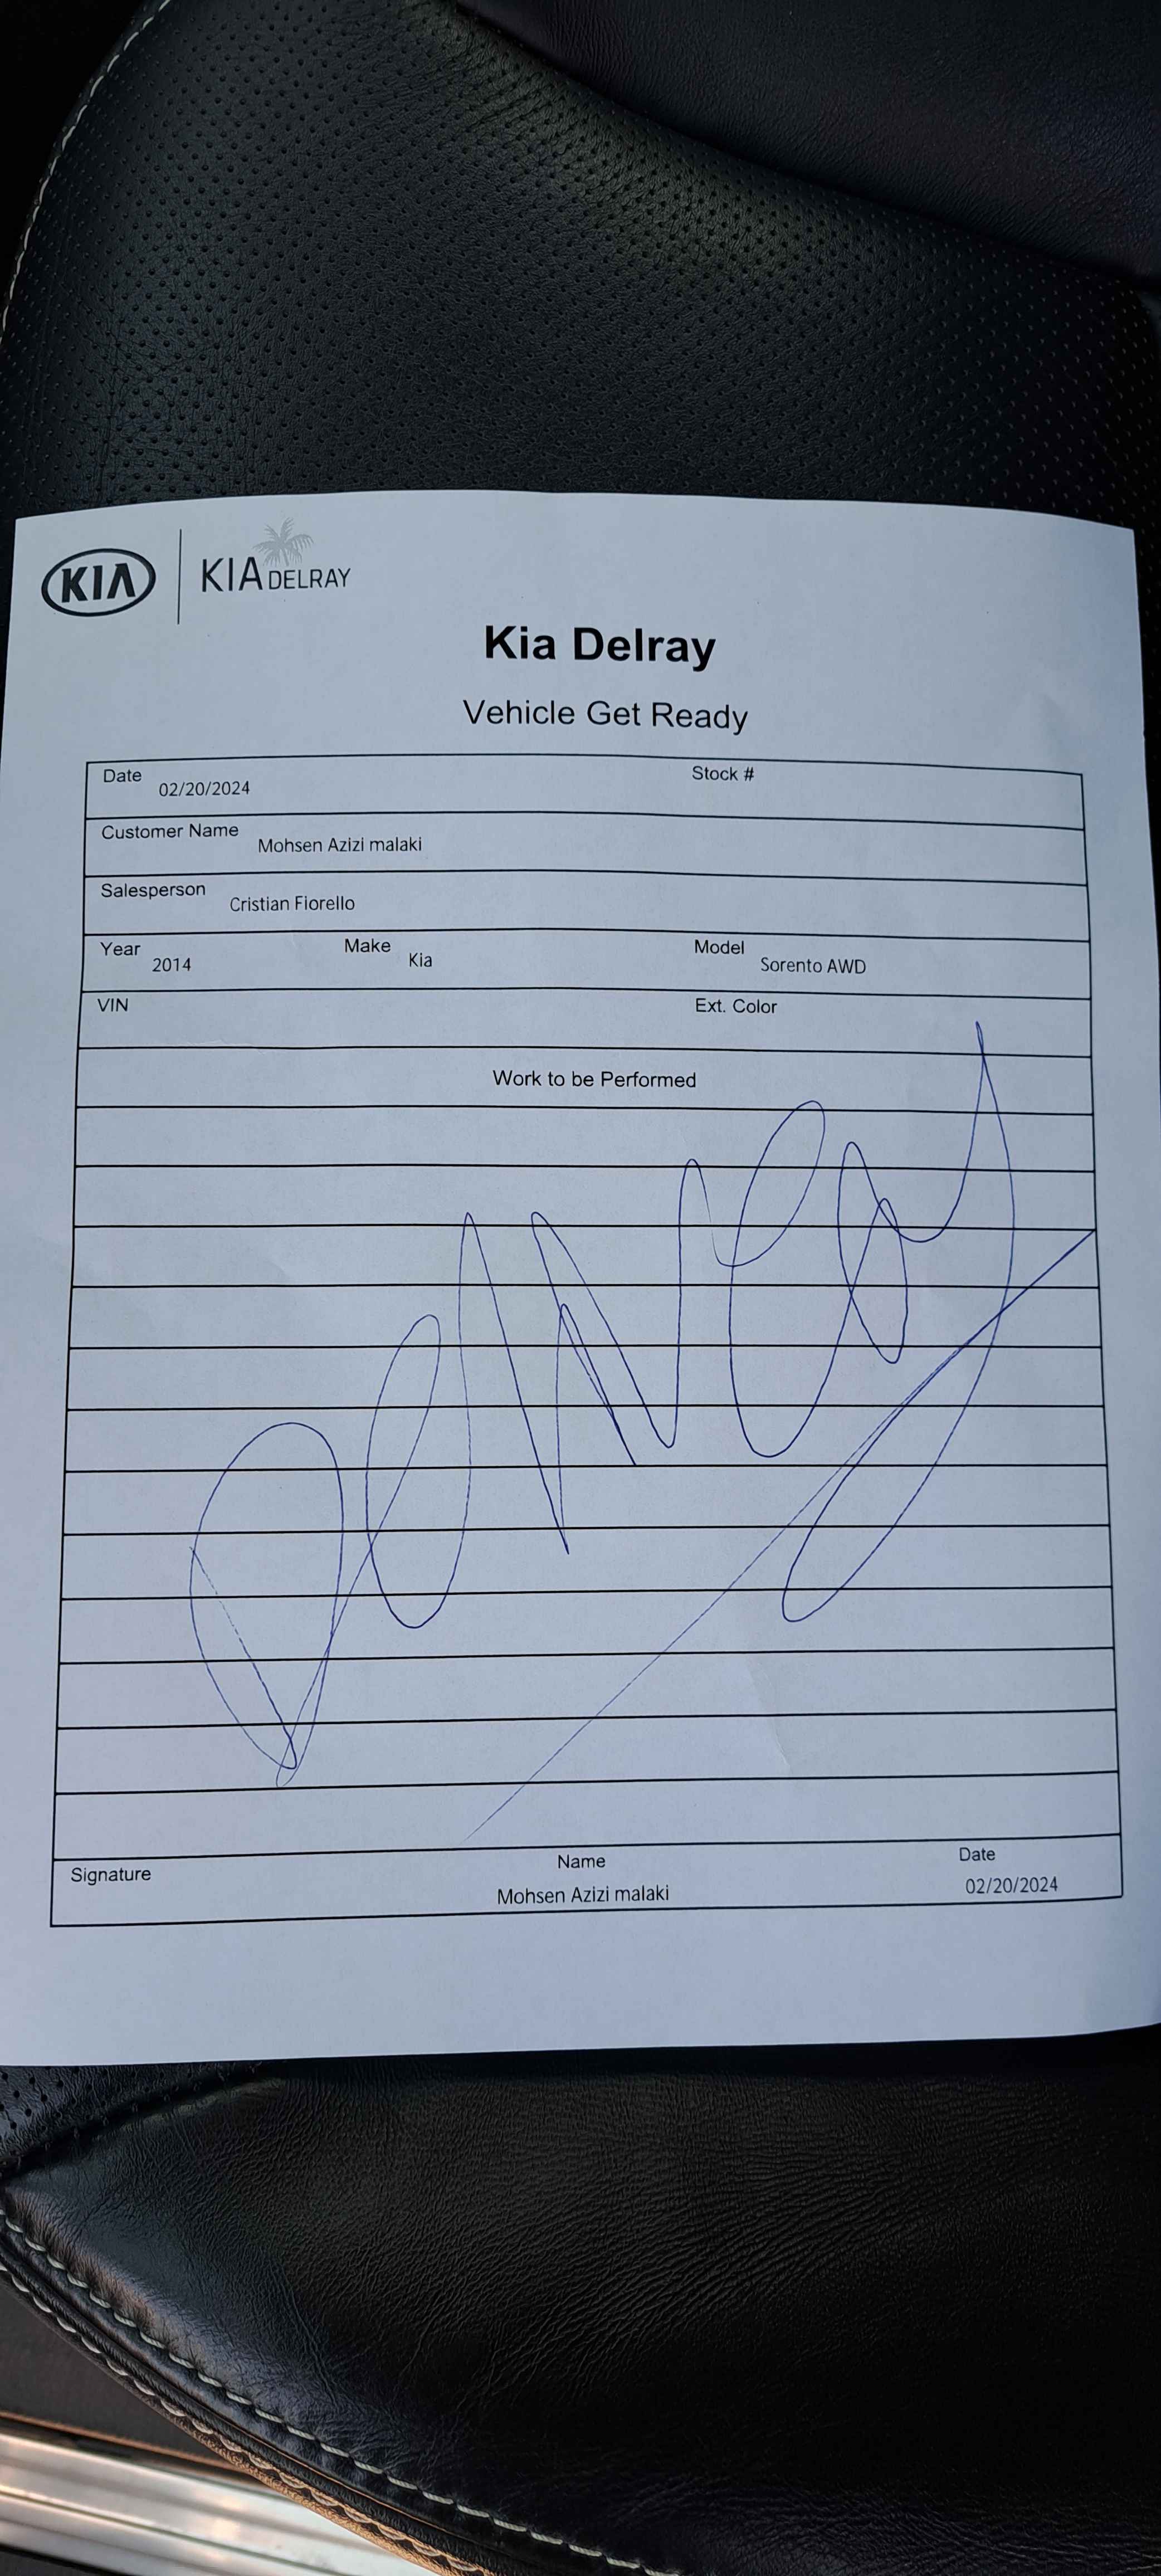 KIA KIA DELRAY
Kia Delray
Vehicle Get Ready
Date 02/20/2024 Stock #
Customer Name Mohsen Azizi malaki
Salesperson Cristian Fiorello
Year 2014 Make Kia Model Sorento AWD
VIN Ext. Color
Work to be Performed
Signature Name Mohsen Azizi malaki Date 02/20/2024